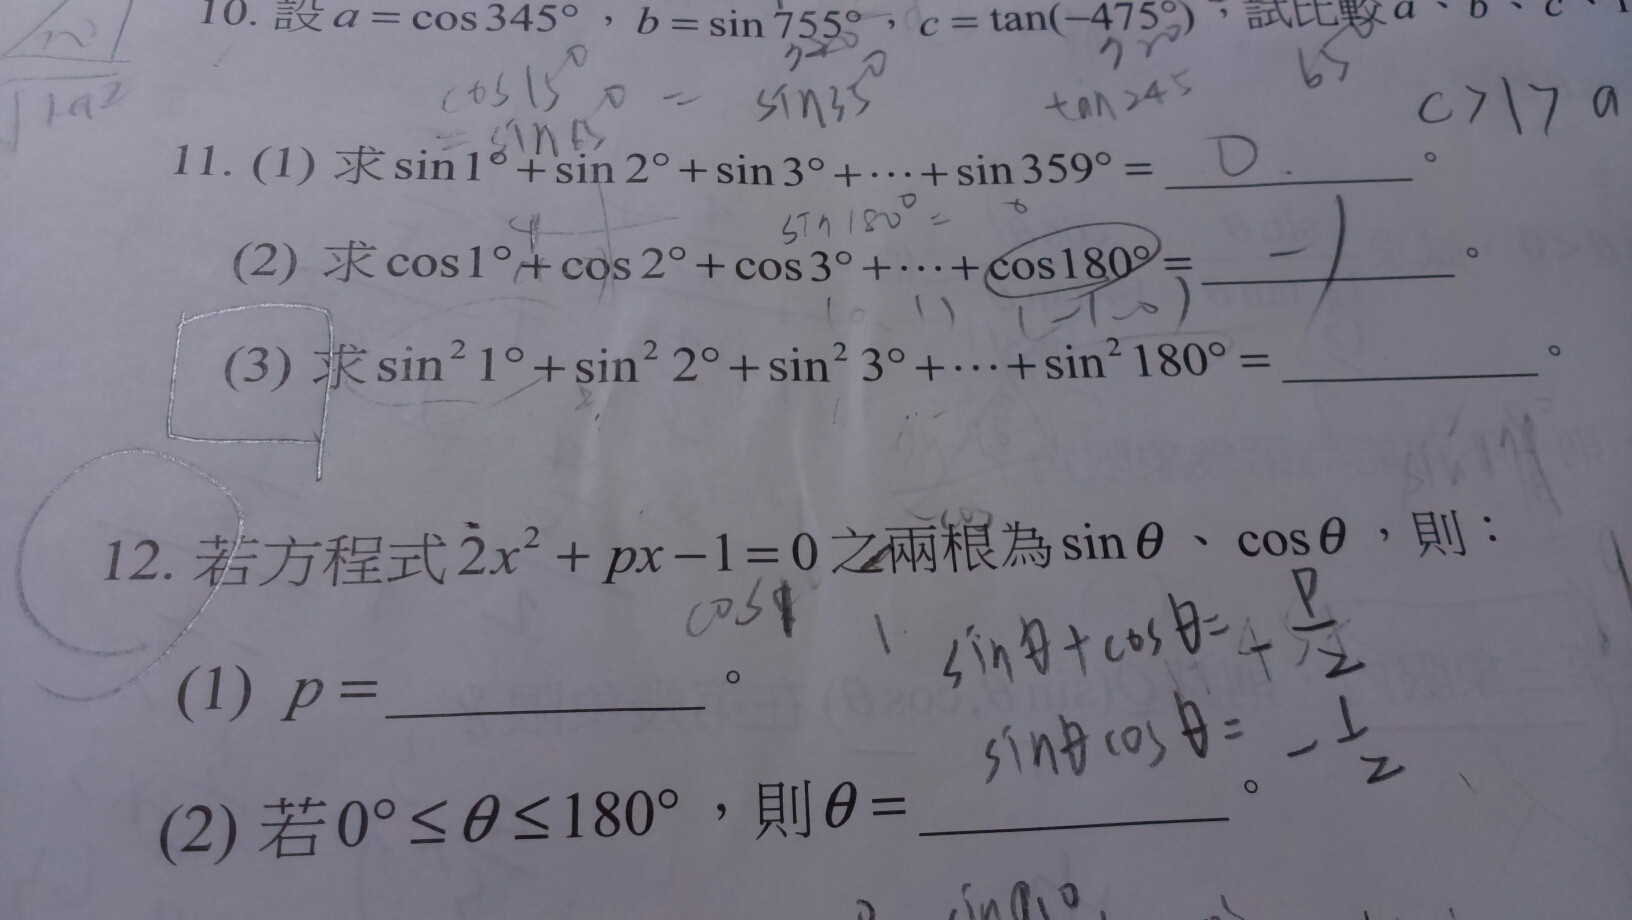 10. 設 a = cos 345°，b = sin 755°，c = tan(−475°)，試比較 a、b、c、1
cos 15° = sin 35° tan 245 65°
= sin 15
c > 1 > a
√1-a²
11. (1) 求 sin 1° + sin 2° + sin 3° + ⋯ + sin 359° = 0 。
sin 180° = 0
(2) 求 cos 1° + cos 2° + cos 3° + ⋯ + cos 180° = −1 。
(3) 求 sin² 1° + sin² 2° + sin² 3° + ⋯ + sin² 180° = ________ 。
12. 若方程式 2x² + px − 1 = 0 之兩根為 sin θ、cos θ，則：
sin θ + cos θ = + P/2
(1) p = ________ 。
sin θ cos θ = − 1/2
(2) 若 0° ≤ θ ≤ 180°，則 θ = ________ 。